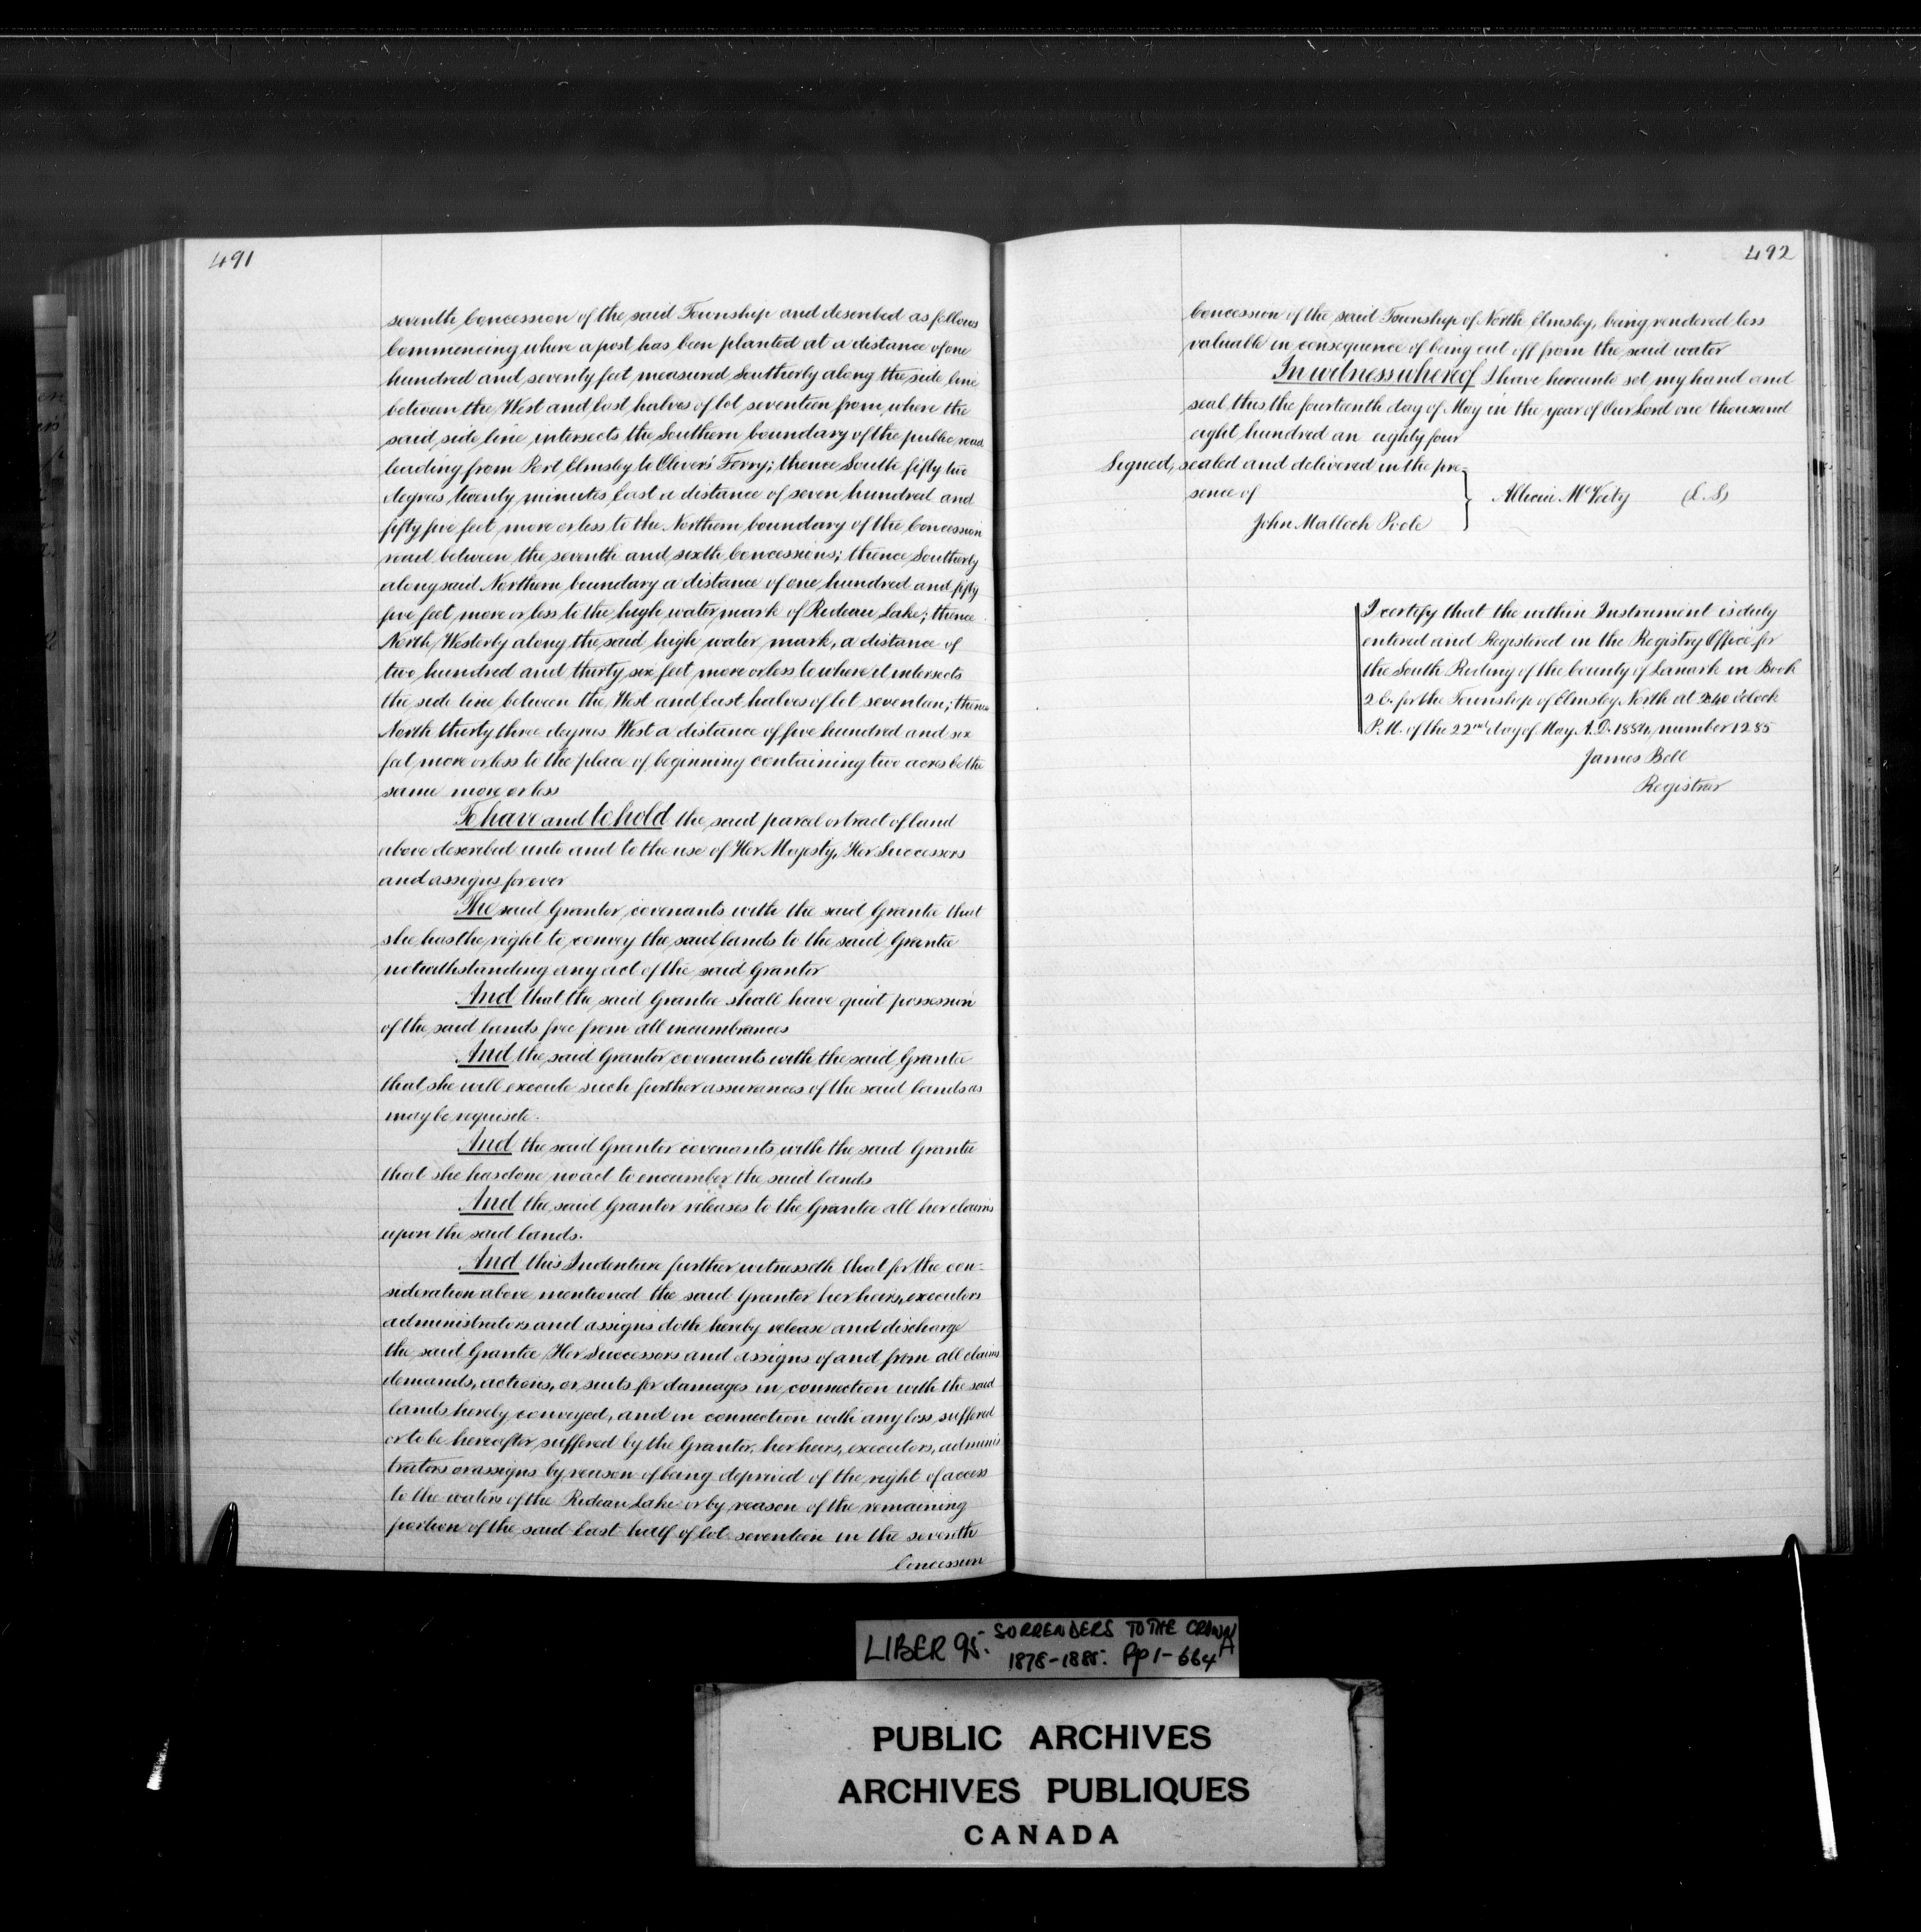 491
seventh Concession of the said Township and described as follows
Commencing where a post has been planted at a distance of one
hundred and seventy feet measured Southerly along the side line
between the West and East halves of lot seventeen from where the
said side line intersects the Southern boundary of the public road
leading from Port Elmsley to Oliver's Ferry; thence South fifty two
degrees twenty minutes East a distance of seven hundred and
fifty five feet more or less to the Northern boundary of the Concession
road between the seventh and sixth Concessions; thence Southerly
along said Northern boundary a distance of one hundred and fifty
five feet more or less to the high water mark of Rideau Lake; thence
North Westerly along the said high water mark, a distance of
two hundred and thirty six feet more or less to where it intersects
the side line between the West and East halves of lot seventeen; thence
North thirty three degrees West a distance of five hundred and six
feet more or less to the place of beginning containing two acres be the
same more or less
To have and to hold the said parcel or tract of land
above described unto and to the use of Her Majesty, Her Successors
and assigns forever
The said Grantor covenants with the said Grantee that
she has the right to convey the said lands to the said Grantee
notwithstanding any act of the said Grantor
And that the said Grantee shall have quiet possession
of the said lands free from all incumbrances
And the said Grantor covenants with the said Grantee
that she will execute such further assurances of the said lands as
may be requisite.
And the said Grantor covenants with the said Grantee
that she has done no act to encumber the said lands
And the said Grantor releases to the Grantee all her claims
upon the said lands.
And this Indenture further witnesseth that for the con-
sideration above mentioned the said Grantor her heirs, executors
administrators and assigns doth hereby release and discharge
the said Grantee Her Successors and assigns of and from all claims
demands, actions, or suits for damages in connection with the said
lands hereby conveyed, and in connection with any loss suffered
or to be hereafter suffered by the Grantor, her heirs, executors, adminis
trators or assigns by reason of being deprived of the right of access
to the waters of the Rideau Lake or by reason of the remaining
portion of the said East half of lot seventeen in the seventh
Concession
492
Concession of the said Township of North Elmsley, being rendered less
valuable in consequence of being cut off from the said water
In witness whereof I have hereunto set my hand and
seal, this the fourteenth day of May in the year of Our Lord one thousand
eight hundred an eighty four
Signed, sealed and delivered in the pre-
sence of
John Malloch Poole
McVeity (L.S)
I certify that the within Instrument is duly
entered and Registered in the Registry Office for
the South Riding of the County of Lanark in Book
2 C. for the Township of Elmsley North at 2.40 o'clock
P.M. of the 22nd day of May A.D. 1884, number 1285
James Bell
Registrar
LIBER 95. SURRENDERS TO THE CROWN
1878-1885. Pp 1-664A
PUBLIC ARCHIVES
ARCHIVES PUBLIQUES
CANADA